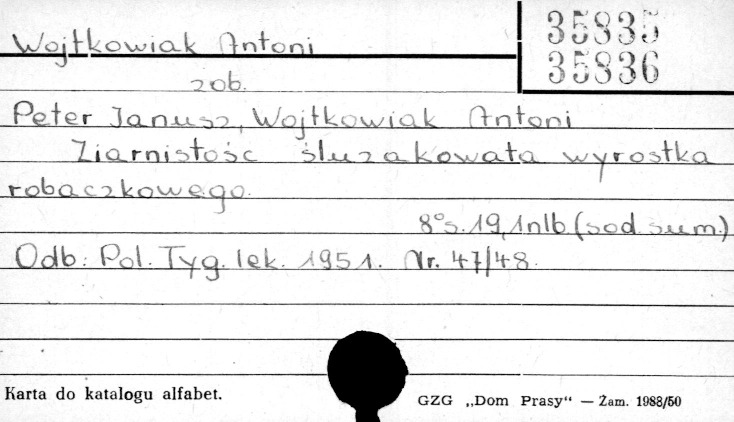 Wojtkowiak Antoni
35835
35836
zob.
Peter Janusz, Wojtkowiak Antoni
Ziarnistość śluzakowata wyrostka
robaczkowego.
8° s. 19, 1 nlb. (sod. sum.)
Odb: Pol. Tyg. lek. 1951. Nr. 47/48.
Karta do katalogu alfabet.
GZG „Dom Prasy“ — Żam. 1988/50